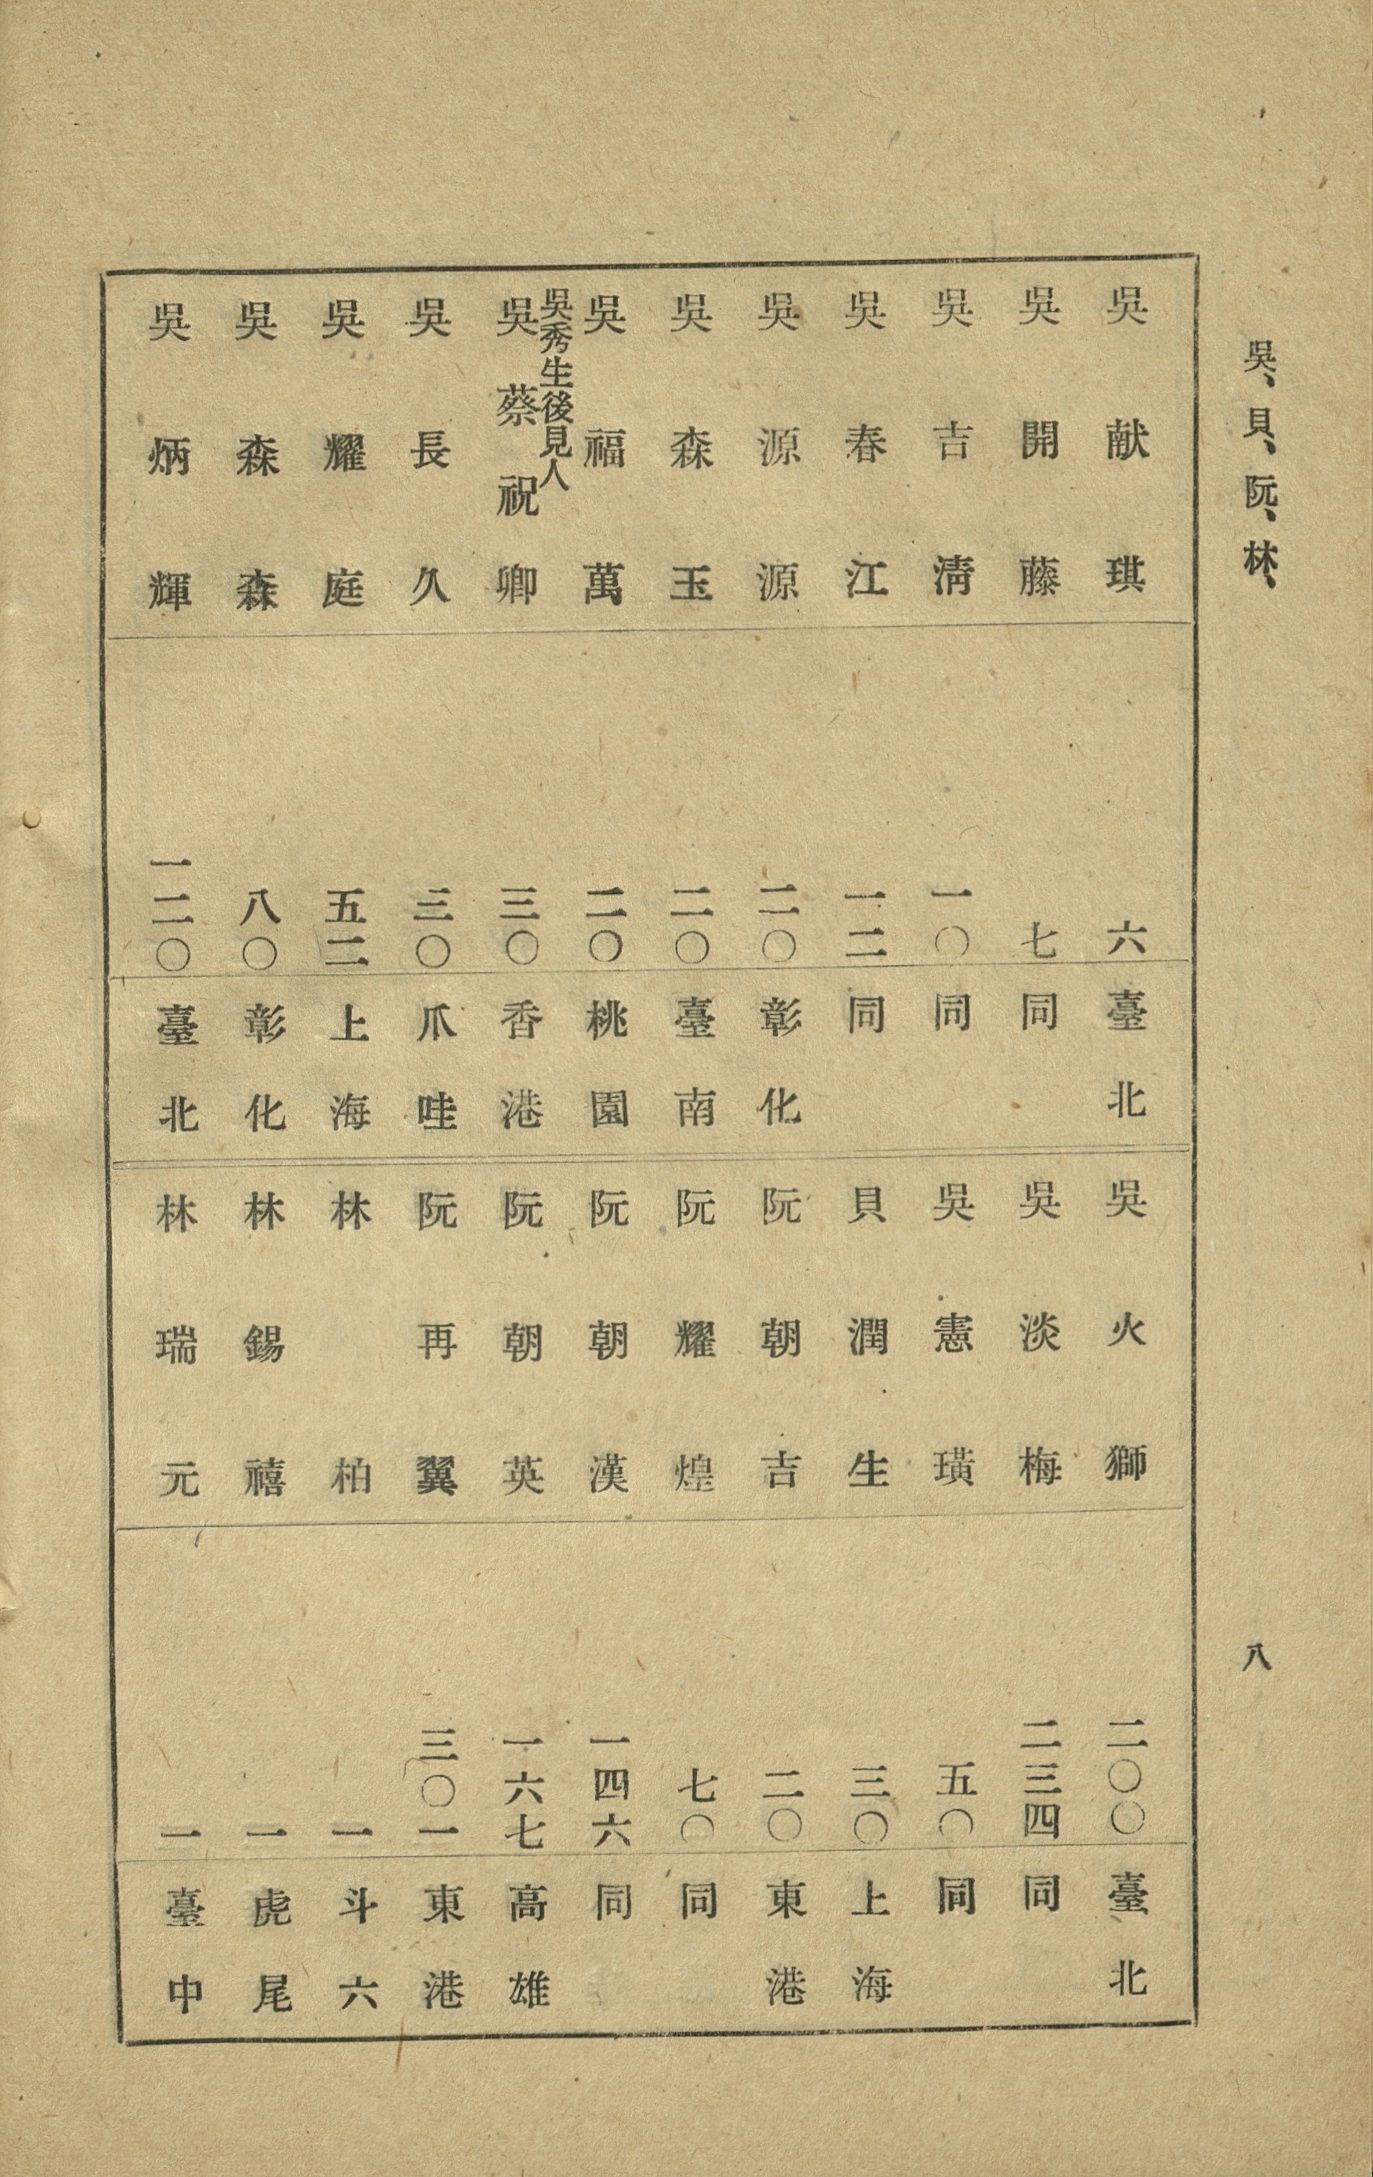 吳、貝、阮、林、
八
吳献琪 六 臺北
吳開藤 七 同
吳吉淸 一〇 同
吳春江 一二 同
吳源源 二〇 彰化
吳森玉 二〇 臺南
吳福萬 二〇 桃園
吳秀生後見人
吳蔡祝卿 三〇 香港
吳長久 三〇 爪哇
吳耀庭 五二 上海
吳森森 八〇 彰化
吳炳輝 一二〇 臺北
吳火獅 二〇〇 臺北
吳淡梅 二三四 同
吳憲璜 五〇 同
貝潤生 三〇 上海
阮朝吉 二〇 東港
阮耀煌 七〇 同
阮朝漢 一四六 同
阮朝英 一六七 高雄
阮再翼 三〇一 東港
林柏 一 斗六
林錫禧 一 虎尾
林瑞元 一 臺中